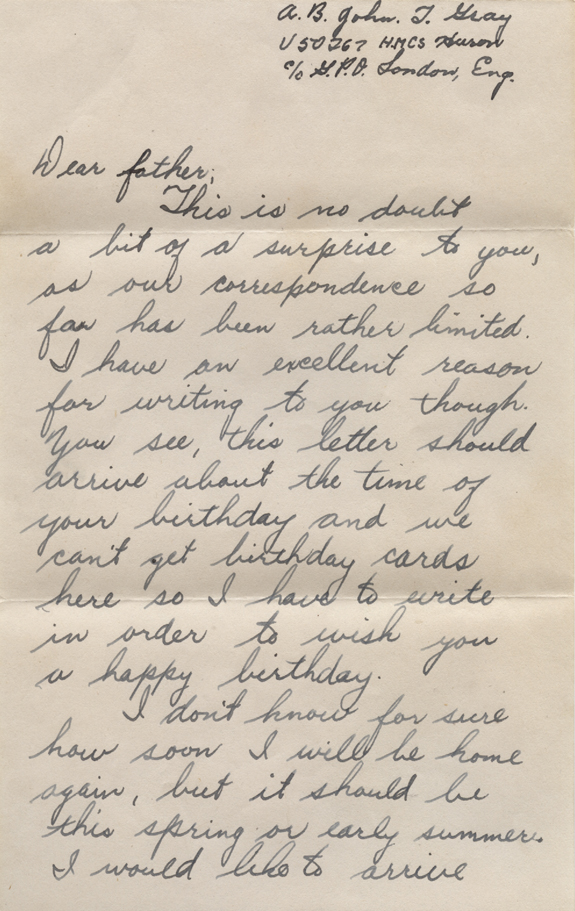 A. B. John. T. Gray
V 50767 HMCS Huron
c/o G.P.O. London, Eng.
Dear father,
This is no doubt
a bit of a surprise to you,
as our correspondence so
far has been rather limited.
I have an excellent reason
for writing to you though.
You see, this letter should
arrive about the time of
your birthday and we
can't get birthday cards
here so I have to write
in order to wish you
a happy birthday.
I don't know for sure
how soon I will be home
again, but it should be
this spring or early summer.
I would like to arrive